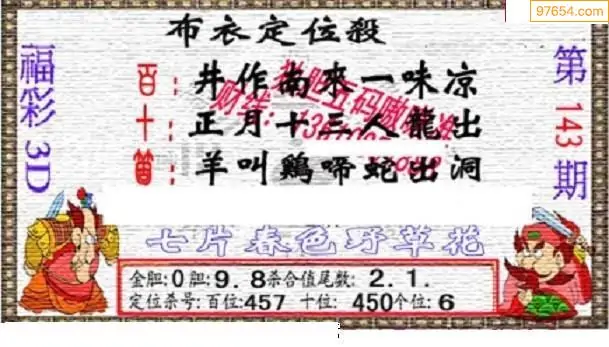 97654.com
布衣定位殺
福彩3D
第143期
百：井作南來一味凉
十：正月十三人龍出
個：羊叫鷄啼蛇出洞
七片春色野草花
金胆:0胆:9.8杀合值尾数:2.1.
定位杀号:百位457 十位:450个位:6